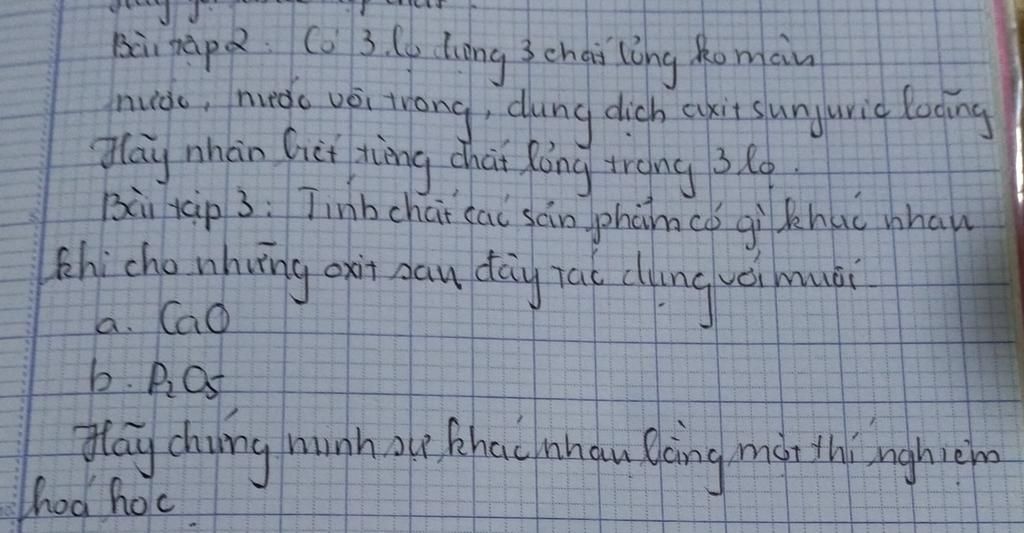 Bài tập 2: Có 3 lọ đựng 3 chất lỏng ko màu
nước, nước vôi trong, dung dịch axit sunfuric loãng
Hãy nhận biết từng chất lỏng trong 3 lọ.
Bài tập 3: Tính chất các sản phẩm có gì khác nhau
khi cho những oxit sau đây tác dụng với muối
a. CaO
b. P₂O₅
Hãy chứng minh sự khác nhau bằng một thí nghiệm
hoá học